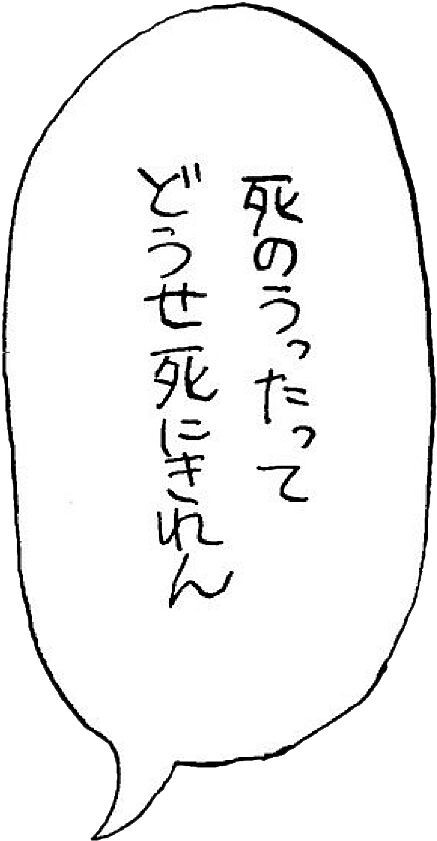 死のうったって
どうせ死にきれん